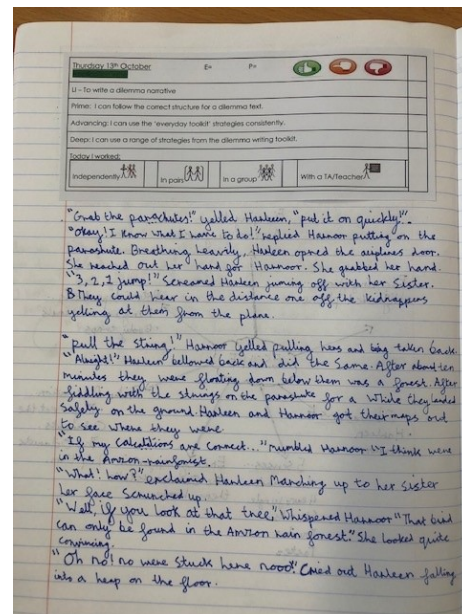 Thursday 13th October E= P=
LI – To write a dilemma narrative
Prime: I can follow the correct structure for a dilemma text.
Advancing: I can use the 'everyday toolkit' strategies consistently.
Deep: I can use a range of strategies from the dilemma writing toolkit.
Today I worked:
Independently In pairs In a group With a TA/Teacher
"Grab the parachutes!" yelled Harleen, "put it on quickly!"
"Okay! I know what I have to do!" replied Harnoor putting on the
parashute. Breathing heavily, Harleen opned the airplanes door.
She reached out her hand for Harnoor. She grabbed her hand.
"3, 2, 1 jump!" Screamed Harleen juming off with her Sister.
They could hear in the distance one off the kidnappers
yelling at them from the plane.
"pull the string!" Harnoor yelled pulling hers and bing taken back.
"Alright!" Harleen bellowed back and did the Same. After about ten
minutes they were floating down below them was a forest. After
fiddling with the strings on the parashute for a while they landed
Safely on the ground. Harleen and Harnoor got their maps out
to see where they were.
"If my calculations are correct..." mumbled Harnoor "I think were
in the Amzon-rainforist.
"What! how?" exclaimed Harleen Marching up to her sister
her face scrunched up.
"Well, if you look at that tree," Whispered Harnoor "That bird
can only be found in the Amzon rain forest." She looked quite
convincing.
"Oh no! no were Stuck here nooo!" Cried out Harleen falling
into a heap on the floor.